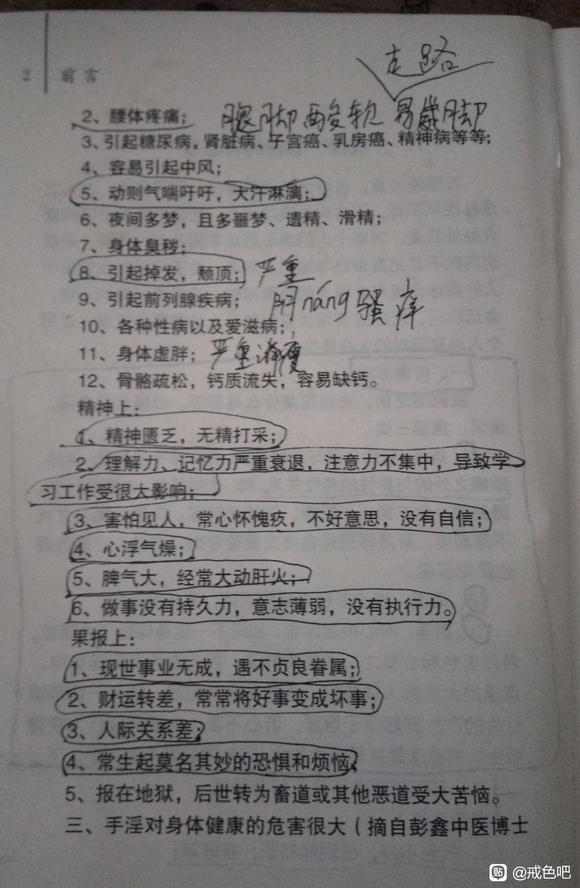 走路
2 前言
2、腰体疼痛； 腿脚酸软 易崴脚
3、引起糖尿病，肾脏病、子宫癌、乳房癌、精神病等等；
4、容易引起中风；
5、动则气喘吁吁，大汗淋漓；
6、夜间多梦，且多噩梦、遗精、滑精；
7、身体臭秽；
8、引起掉发，颓顶； 严重
9、引起前列腺疾病； 阴náng骚痒
10、各种性病以及爱滋病；
11、身体虚胖； 严重消瘦
12、骨骼疏松，钙质流失，容易缺钙。
精神上：
1、精神匮乏，无精打采；
2、理解力、记忆力严重衰退，注意力不集中，导致学
习工作受很大影响；
3、害怕见人，常心怀愧疚，不好意思，没有自信；
4、心浮气燥；
5、脾气大，经常大动肝火；
6、做事没有持久力，意志薄弱，没有执行力。
果报上：
1、现世事业无成，遇不贞良眷属；
2、财运转差，常常将好事变成坏事；
3、人际关系差；
4、常生起莫名其妙的恐惧和烦恼；
5、报在地狱，后世转为畜道或其他恶道受大苦恼。
三、手淫对身体健康的危害很大（摘自彭鑫中医博士
贴 @戒色吧